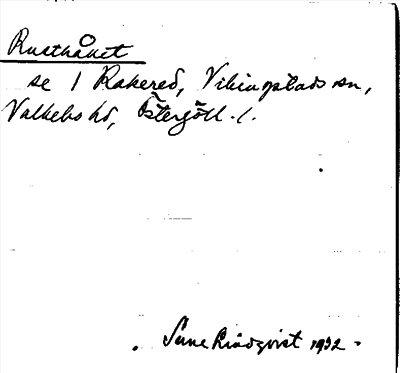 Rusthållet
se 1 Rakered, Vikingstads sn,
Valkebo hd, Östergötl. l.
Sune Lindqvist 1932.